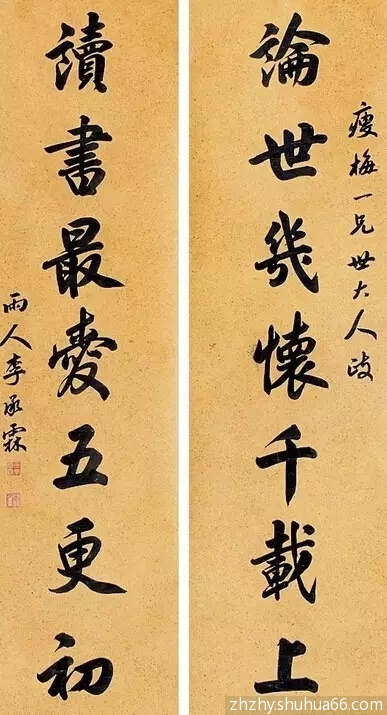 瘦梅一兄世大人政
論世幾懷千載上
讀書最愛五更初
雨人李承霖
zhzhy.shuhua66.com